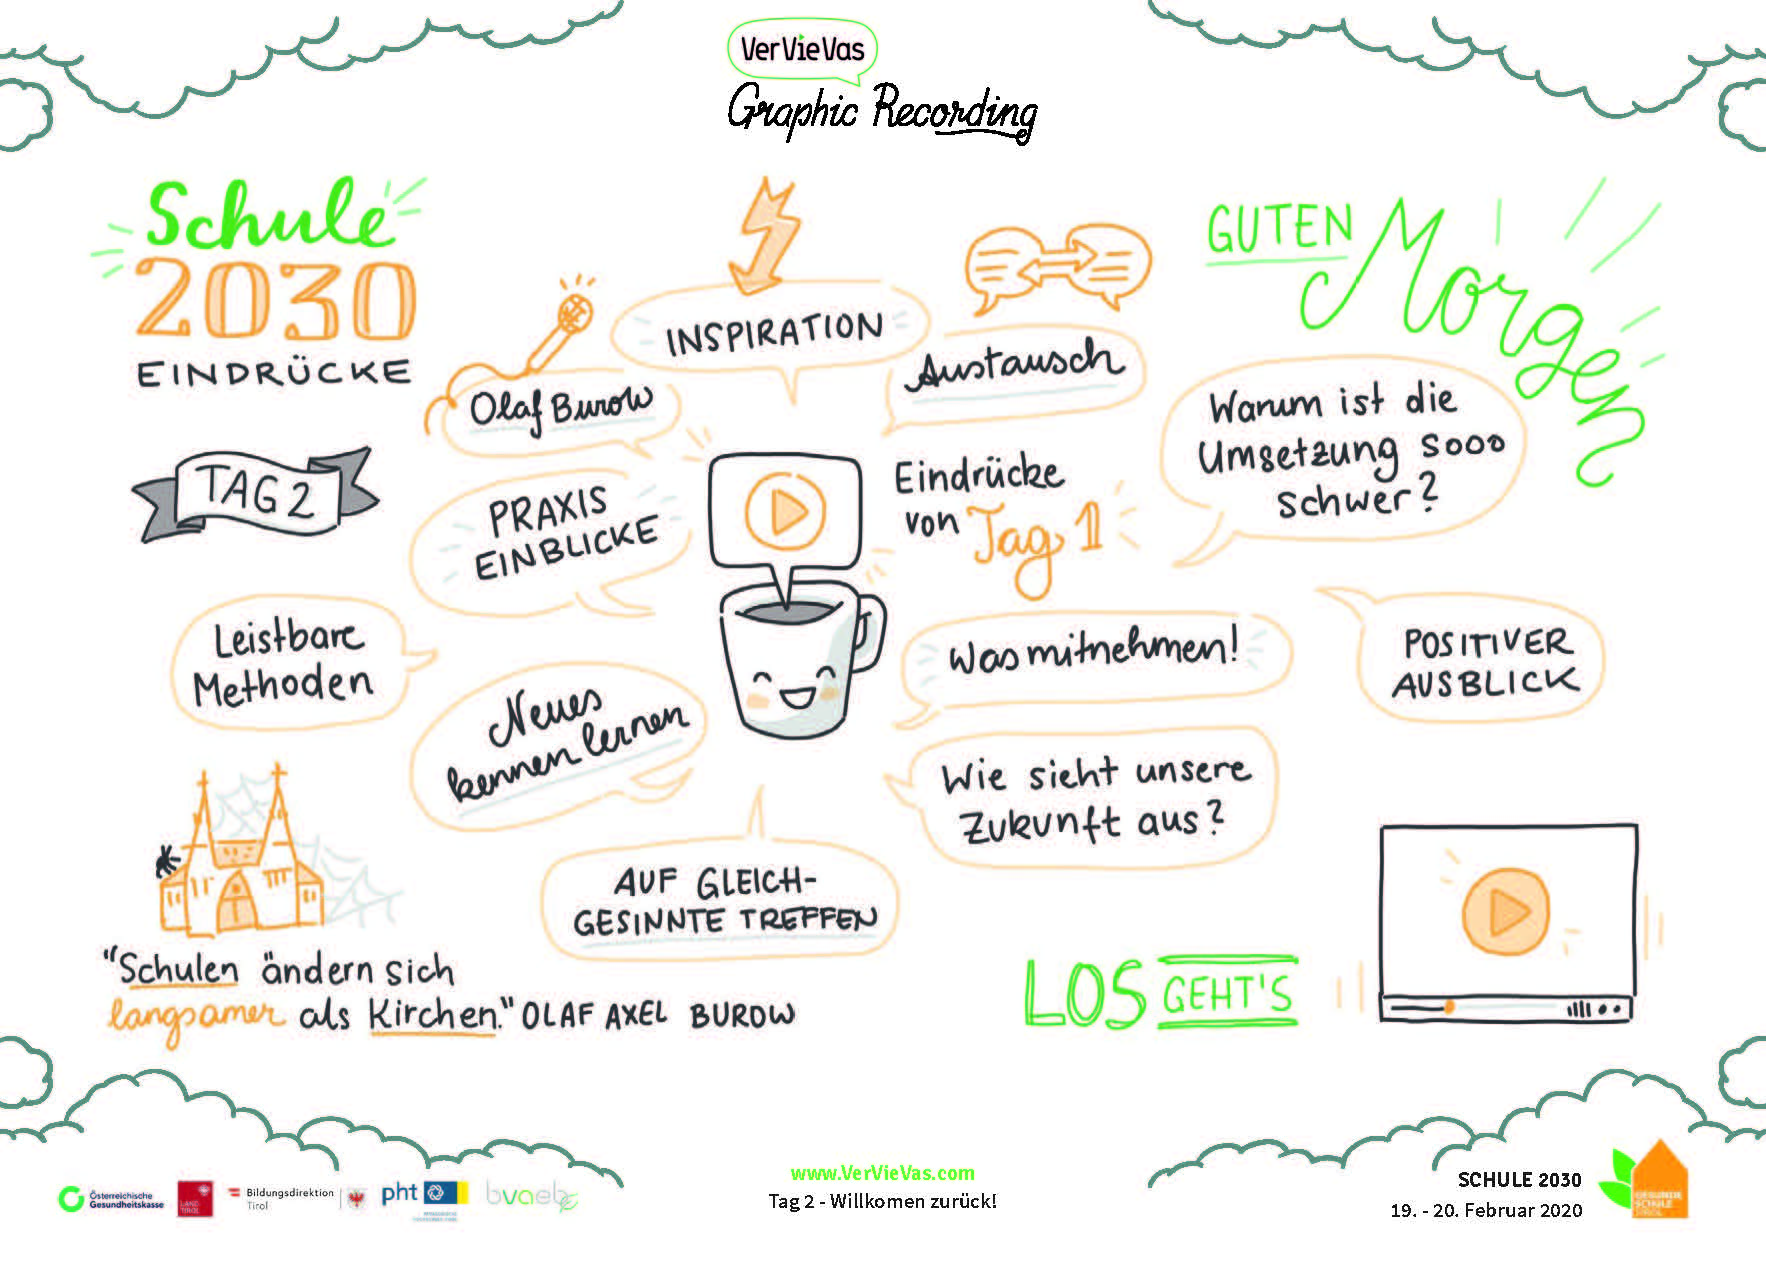 VerVieVas
Graphic Recording
Schule
2030
EINDRÜCKE
TAG 2
GUTEN
Morgen
INSPIRATION
Austausch
Olaf Burow
PRAXIS
EINBLICKE
Eindrücke
von Tag 1
Warum ist die
Umsetzung sooo
schwer?
Leistbare
Methoden
Neues
kennen lernen
Was mitnehmen!
POSITIVER
AUSBLICK
Wie sieht unsere
Zukunft aus?
AUF GLEICH-
GESINNTE TREFFEN
"Schulen ändern sich
langsamer als Kirchen." OLAF AXEL BUROW
LOS GEHT'S
Österreichische
Gesundheitskasse
LAND
TIROL
Bildungsdirektion
Tirol
pht
bvaeb
www.VerVieVas.com
Tag 2 - Willkomen zurück!
SCHULE 2030
19. - 20. Februar 2020
GESUNDE
SCHULE
TIROL